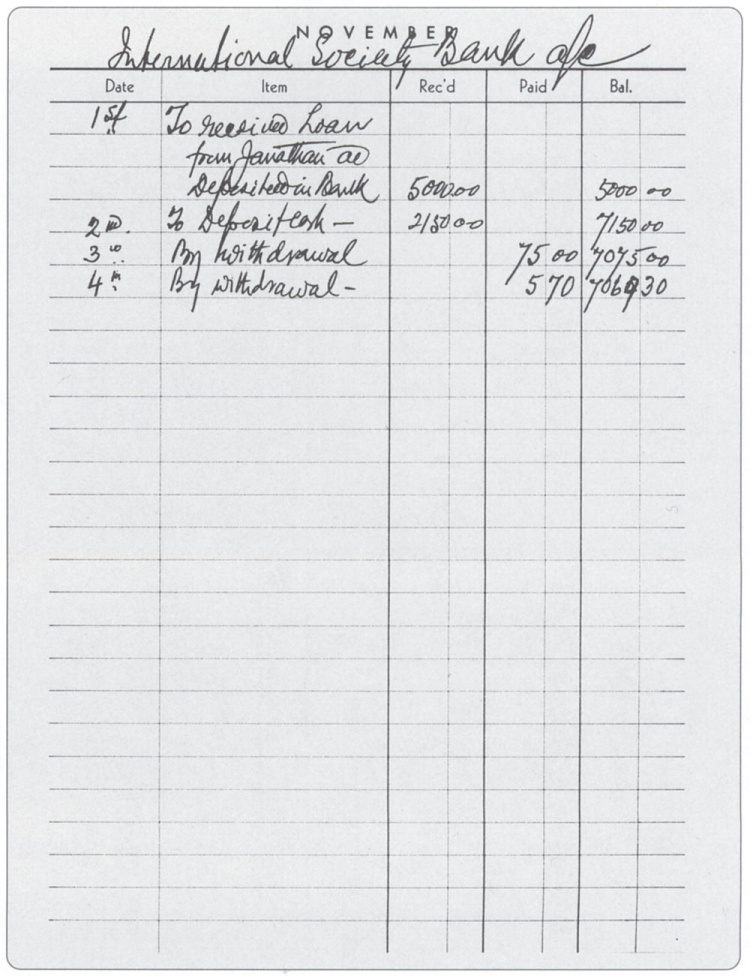 NOVEMBER
International Society Bank a/c
Date Item Rec'd Paid Bal.
1st To received Loan
from Janathan ac
Deposited in Bank 5000.00 5000 00
2nd To Deposit Cash — 2150 00 7150 00
3rd By withdrawal 75 00 7075 00
4th By withdrawal - 5 70 7069 30